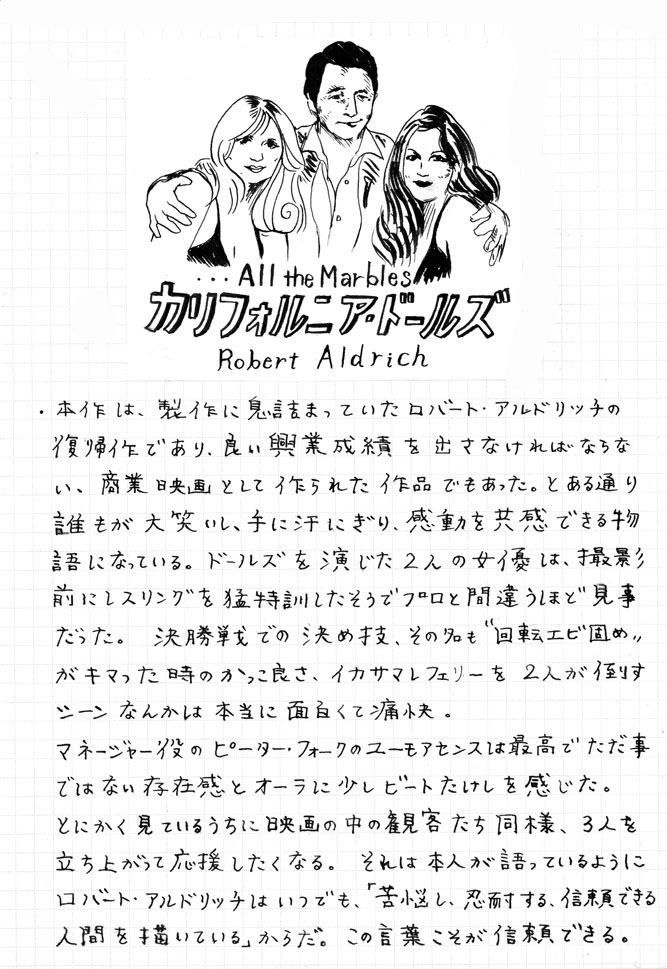 ...All the Marbles
カリフォルニア・ドールズ
Robert Aldrich
・本作は、製作に息詰まっていたロバート・アルドリッチの
復帰作であり、良い興業成績を出さなければならな
い、商業映画として作られた作品でもあった。とある通り
誰もが大笑いし、手に汗にぎり、感動を共感できる物
語になっている。ドールズを演じた2人の女優は、撮影
前にレスリングを猛特訓したそうでプロと間違うほど見事
だった。 決勝戦での決め技、その名も"回転エビ固め"
がキマった時のかっこ良さ、イカサマレフェリーを2人が倒す
シーンなんかは本当に面白くて痛快。
マネージャー役のピーター・フォークのユーモアセンスは最高でただ事
ではない存在感とオーラに少しビートたけしを感じた。
とにかく見ているうちに映画の中の観客たち同様、3人を
立ち上がって応援したくなる。 それは本人が語っているように
ロバート・アルドリッチはいつでも、「苦悩し、忍耐する、信頼できる
人間を描いている」からだ。この言葉こそが信頼できる。